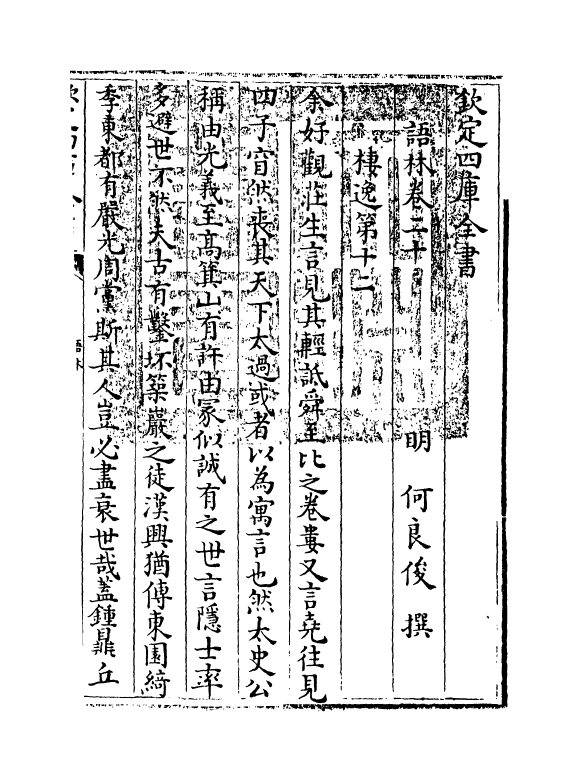 欽定四庫全書
語林卷二十　明　何良俊　撰
棲逸第十二
余好觀莊生言見其輕詆舜至比之卷婁又言堯往見
四子窅然喪其天下太過或者以為寓言也然太史公
稱由光義至髙箕山有許由冢似誠有之世言隱士率
多避世不然夫古有鑿坏築巖之徒漢興猶傳東園綺
季東都有嚴光周黨斯其人豈必盡衰世哉蓋鍾鼎丘
語林